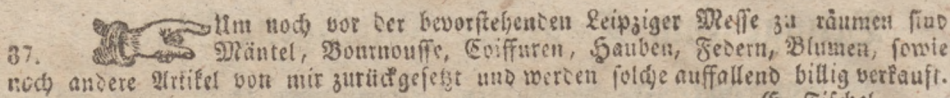 Um noch vor der bevorstehenden Leipziger Messe zu räumen sind
37. Mäntel, Bournousse, Coiffuren, Hauben, Federn, Blumen, sowie
noch andere Artikel von mir zurückgesetzt und werden solche auffallend billig verkauft.